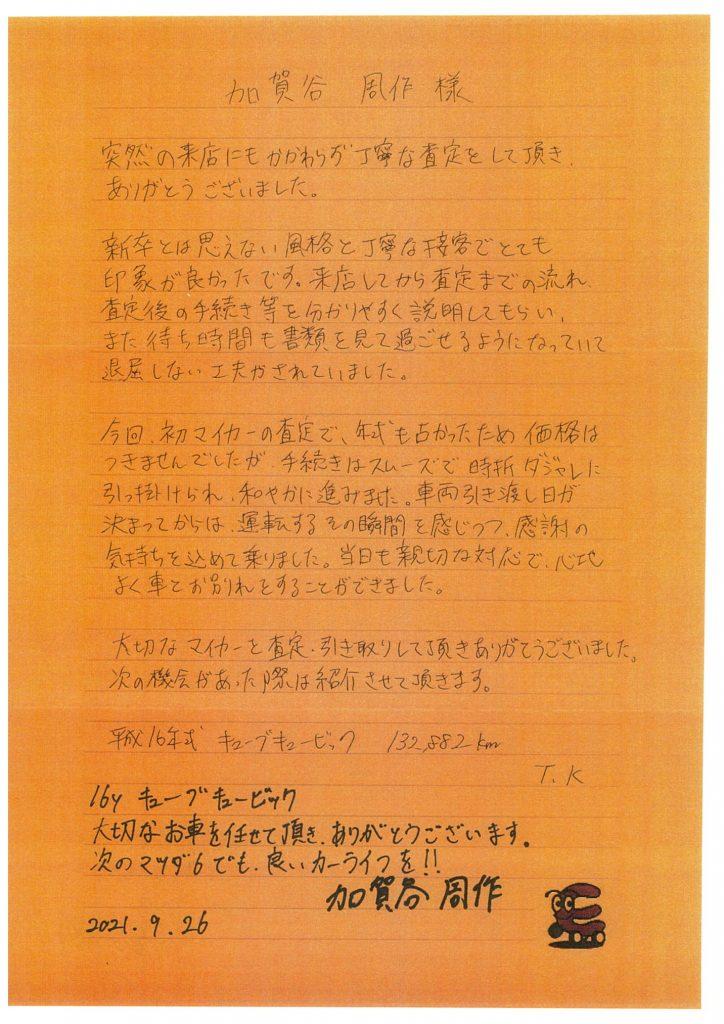 加賀谷 周作 様
突然の来店にもかかわらず丁寧な査定をして頂き、
ありがとうございました。
新卒とは思えない風格と丁寧な接客でとても
印象が良かったです。来店してから査定までの流れ、
査定後の手続き等を分かりやすく説明してもらい、
また待ち時間も書類を見て過ごせるようになっていて
退屈しない工夫がされていました。
今回、初マイカーの査定で、年式も古かったため価格は
つきませんでしたが、手続きはスムーズで時折ダジャレに
引っ掛けられ、和やかに進みました。車両引き渡し日が
決まってからは、運転するその瞬間を感じつつ、感謝の
気持ちを込めて乗りました。当日も親切な対応で、心地
よく車とお別れをすることができました。
大切なマイカーを査定・引き取りして頂きありがとうございました。
次の機会があった際は紹介させて頂きます。
平成16年式 キューブキュービック 132,882km
T.K
16y キューブキュービック
大切なお車を任せて頂き、ありがとうございます。
次のマツダ6でも、良いカーライフを!!
加賀谷 周作
2021.9.26